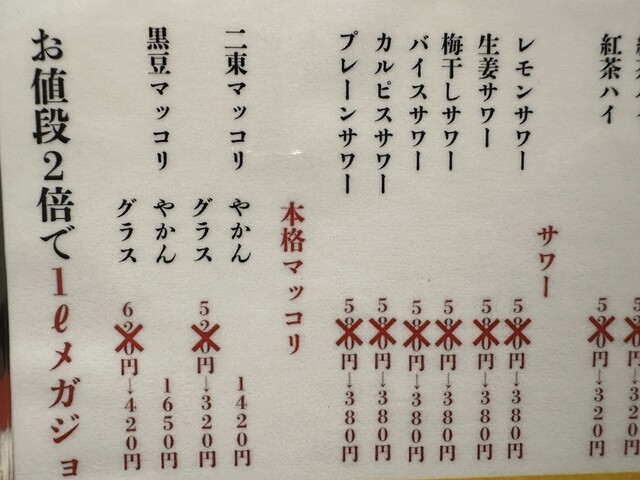 紅茶ハイ 520円→320円
サワー
レモンサワー 580円→380円
生姜サワー 580円→380円
梅干しサワー 580円→380円
バイスサワー 580円→380円
カルピスサワー 580円→380円
プレーンサワー 580円→380円
本格マッコリ
二東マッコリ やかん 1420円
グラス 520円→320円
黒豆マッコリ やかん 1650円
グラス 620円→420円
お値段2倍で1ℓメガジョ